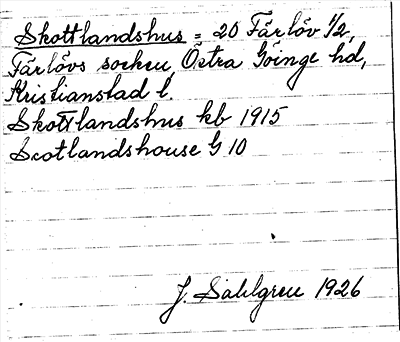 Skottlandshus = 20 Färlöv 1/2,
Färlövs socken Östra Göinge hd,
Kristianstad l.
Skottlandshus kb 1915
Scotlandshouse G 10
J. Sahlgren 1926